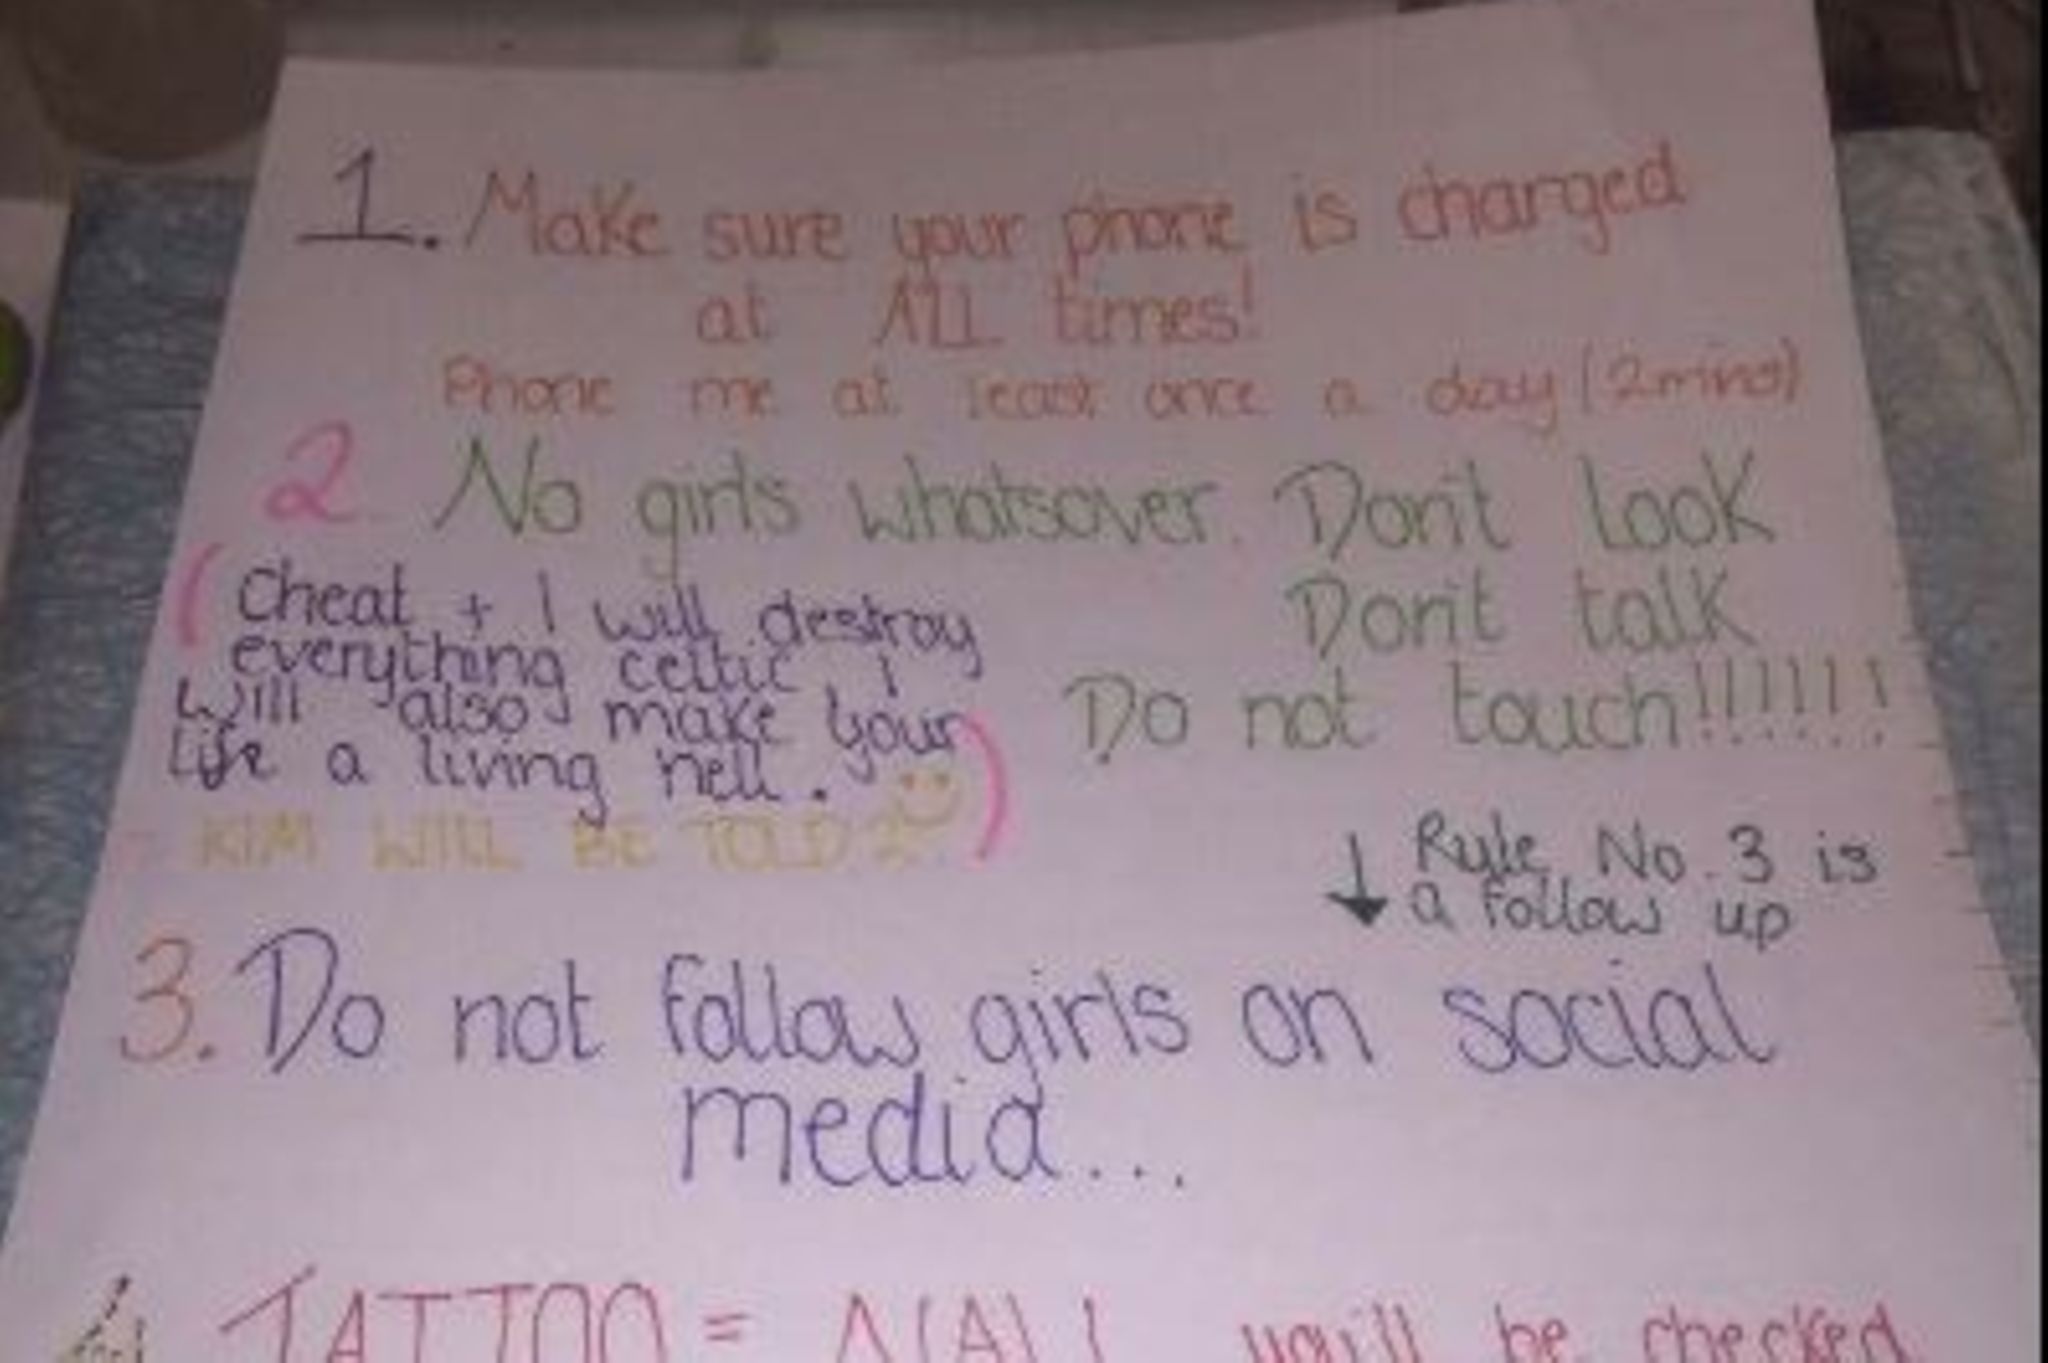 1. Make sure your phone is charged
at ALL times!
Phone me at least once a day (2mins)
2 No girls whatsover. Don't look
Don't talk
Do not touch!!!!!!
(Cheat + I will destroy
everything celtic I
will also make your
life a living hell. )
- KIM WILL BE TOLD
↓ Rule No. 3 is
a follow up
3. Do not follow girls on social
media...
TATTOO = you'll be checked